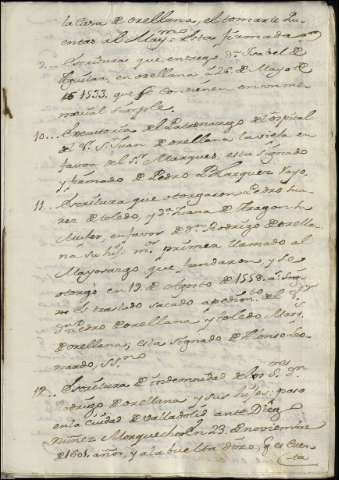 la Casa de orellana, el tomar le Qu
entas al Maymo esta firmada
9... Escritura que entrego Dn Isabel de
Aguilar, en orellana a 26 de Mayo de
1533. que se convienen en un me
morial simple.
10... Executoria del Patronazgo de ospital
de Sr. Sn Juan de orellana la vieja en
favor del Sr. Marques, esta signado
y firmado de Pedro Blazquez Rayo,
11... Escritura que otorgaron Pedro Sua
rez de toledo, y Da Juana de Aragon su
Muger, en favor de Dn Rodrigo de orella
na su hijo mr. primera llamado al
Mayorazgo que fundaron y se
otorgó en 12 de Agosto de 1558. a
no el traslado sacado a pedimto de
Dn Pedro de orellana y toledo Marq
de orellana, esta signado de Alonso Lo
nardo, Ssno
12... Escritura de indemnidad de los Sres Dn
Rodrigo de orellana y sus hijos. paso
en la Ciudad de Valladolid ante Diego
Nuñez Morquecho en 23 de noviembre
de 1601. años, y a la buelta dize, q es Cuen
ta